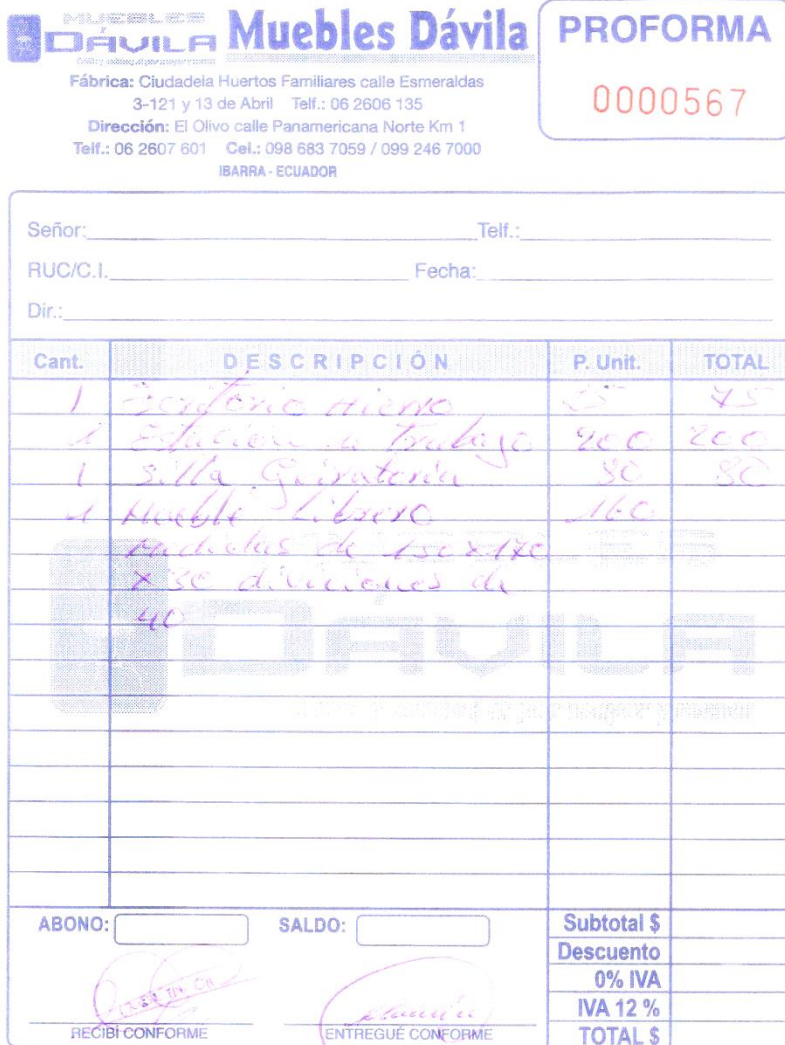 MUEBLES
DÁVILA
Muebles Dávila
PROFORMA
0000567
Fábrica: Ciudadela Huertos Familiares calle Esmeraldas
3-121 y 13 de Abril Telf.: 06 2606 135
Dirección: El Olivo calle Panamericana Norte Km 1
Telf.: 06 2607 601 Cel.: 098 683 7059 / 099 246 7000
IBARRA - ECUADOR
Señor: Telf.:
RUC/C.I. Fecha:
Dir.:
Cant. DESCRIPCIÓN P. Unit. TOTAL
1 Escritorio Hierro 75
1 Estacion Trabajo 200 200
1 Silla Giratoria
1 Mueble Librero 160
Medidas de 150x170
x 30 diviciones de
40
DÁVILA
ABONO: SALDO: Subtotal $
Descuento
0% IVA
IVA 12 %
TOTAL $
RECIBÍ CONFORME ENTREGUÉ CONFORME